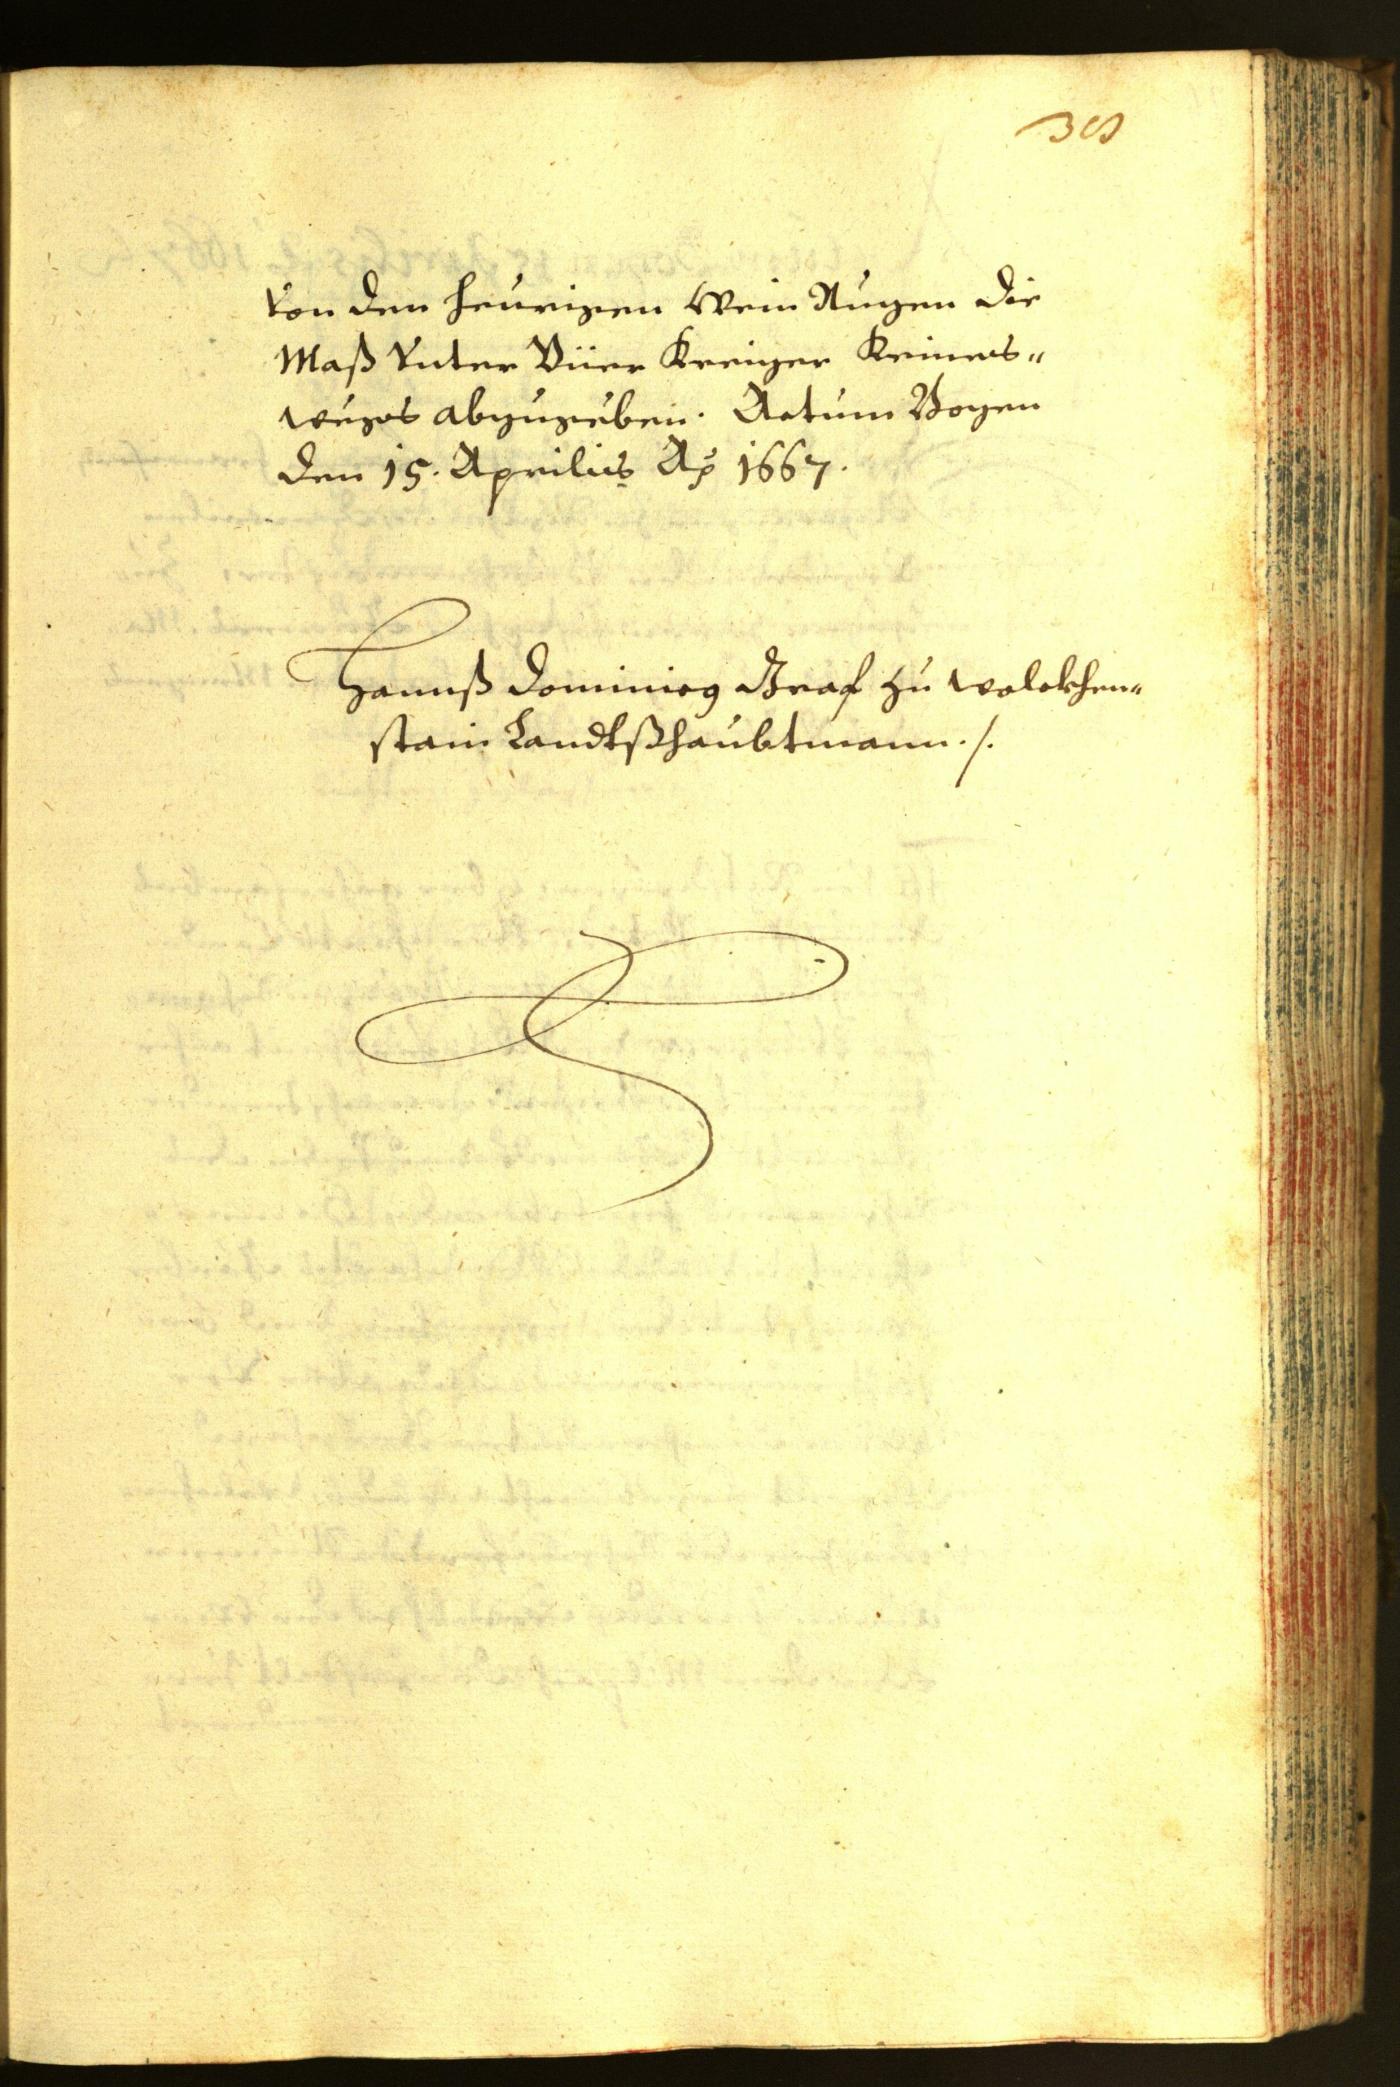 Von den heurigen Wein Augen die
Maß Vnter Viier Kreizer Keines=
weegs abzugeben. Actum Bozen
den 15. Aprilis Ao 1667.
Hannß Dominicus Graf zu Wolckhen=
stain Landtßhaubtman ./.